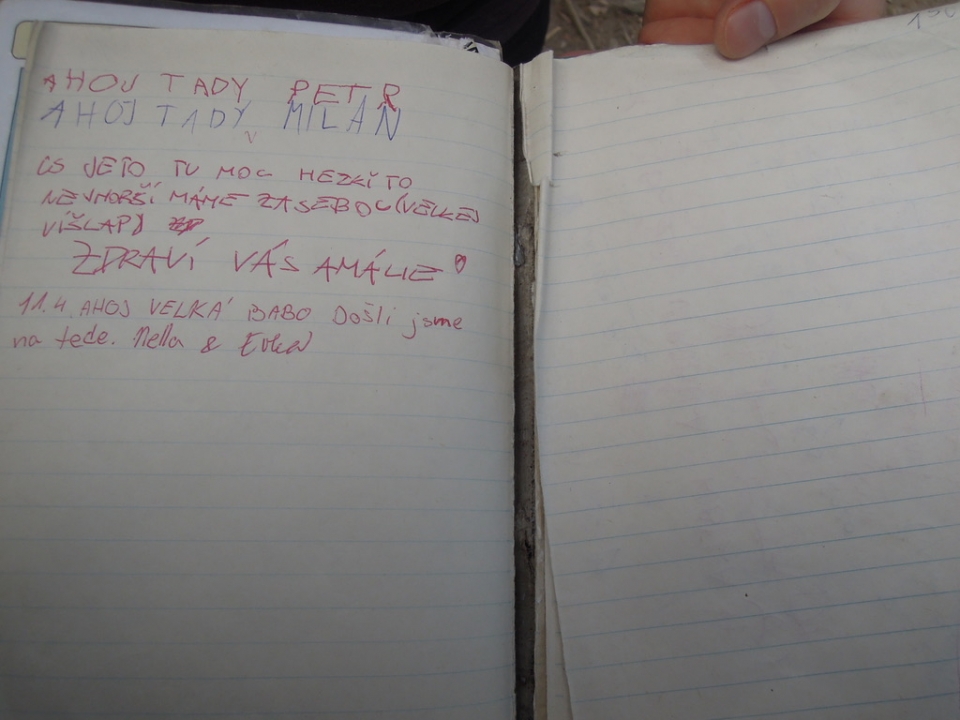 AHOJ TADY PETR
AHOJ TADY MILAN
JE TO TU MOC HEZKÍ TO
NEJHORŠÍ MÁME ZA SEBOU (VELKEJ
VÍŠLAP)
ZDRAVÍ VÁS AMÁLIE
11.4. AHOJ VELKÁ BABO Došli jsme
na tede. Nella &